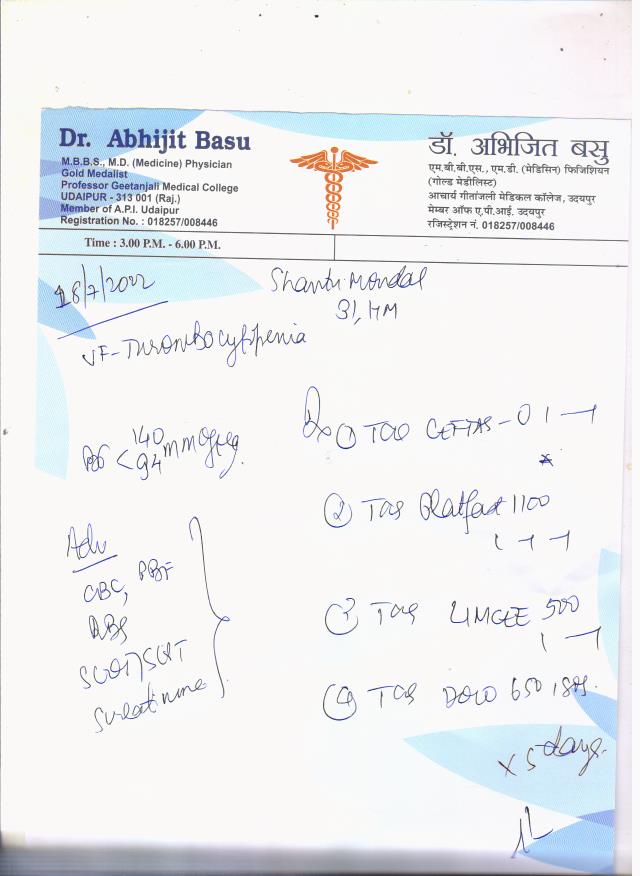 Dr. Abhijit Basu
M.B.B.S., M.D. (Medicine) Physician
Gold Medalist
Professor Geetanjali Medical College
UDAIPUR - 313 001 (Raj.)
Member of A.P.I. Udaipur
Registration No. : 018257/008446
डॉ. अभिजित बसु
एम.बी.बी.एस., एम.डी. (मेडिसिन) फिजिशियन
(गोल्ड मेडीलिस्ट)
आचार्य गीतांजली मेडिकल कॉलेज, उदयपुर
मेम्बर ऑफ ए.पी.आई. उदयपुर
रजिस्ट्रेशन नं. 018257/008446
Time : 3.00 P.M. - 6.00 P.M.
18/7/2022
Mondal
31
Thrombocytopenia
140
94 mmofHg
Adv
CBC, PBF
RBS
SGOT/SGPT
Rx ① Tab 
② Tab Platfast 1100
③ Tab 500
④ Tab Dolo 650 1 SOS.
x 5 days.